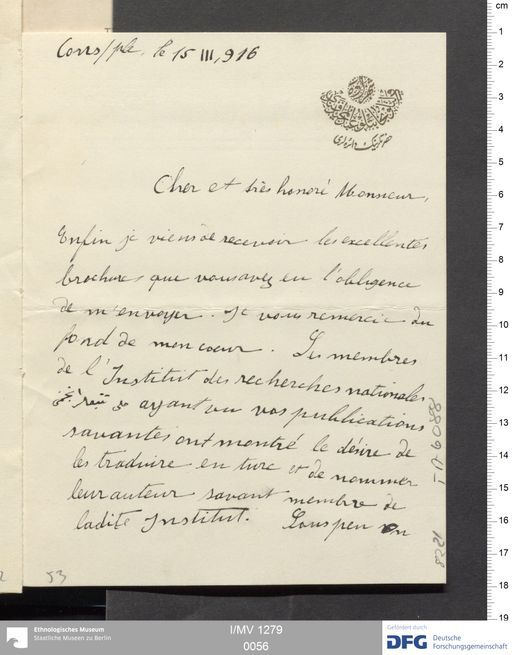 Cons/ple. le 15 III, 916
Cher et très honoré Monsieur,
Enfin je viens de recevoir les excellentes
brochures que vous avez eu l'obligence
de m'envoyer. Je vous remercie du
fond de mon coeur. Les membres
de l'Institut des recherches nationales
ayant vu vos publications
savantes ont montré le désire de
les traduire en turc et de nommer
leur auteur savant membre de
ladite Institut. Sous peu on
53
I A 6088
8221
cm
1
2
3
4
5
6
7
8
9
10
11
12
13
14
15
16
17
18
19
Ethnologisches Museum
Staatliche Museen zu Berlin
I/MV 1279
0056
Gefördert durch
DFG Deutsche
Forschungsgemeinschaft